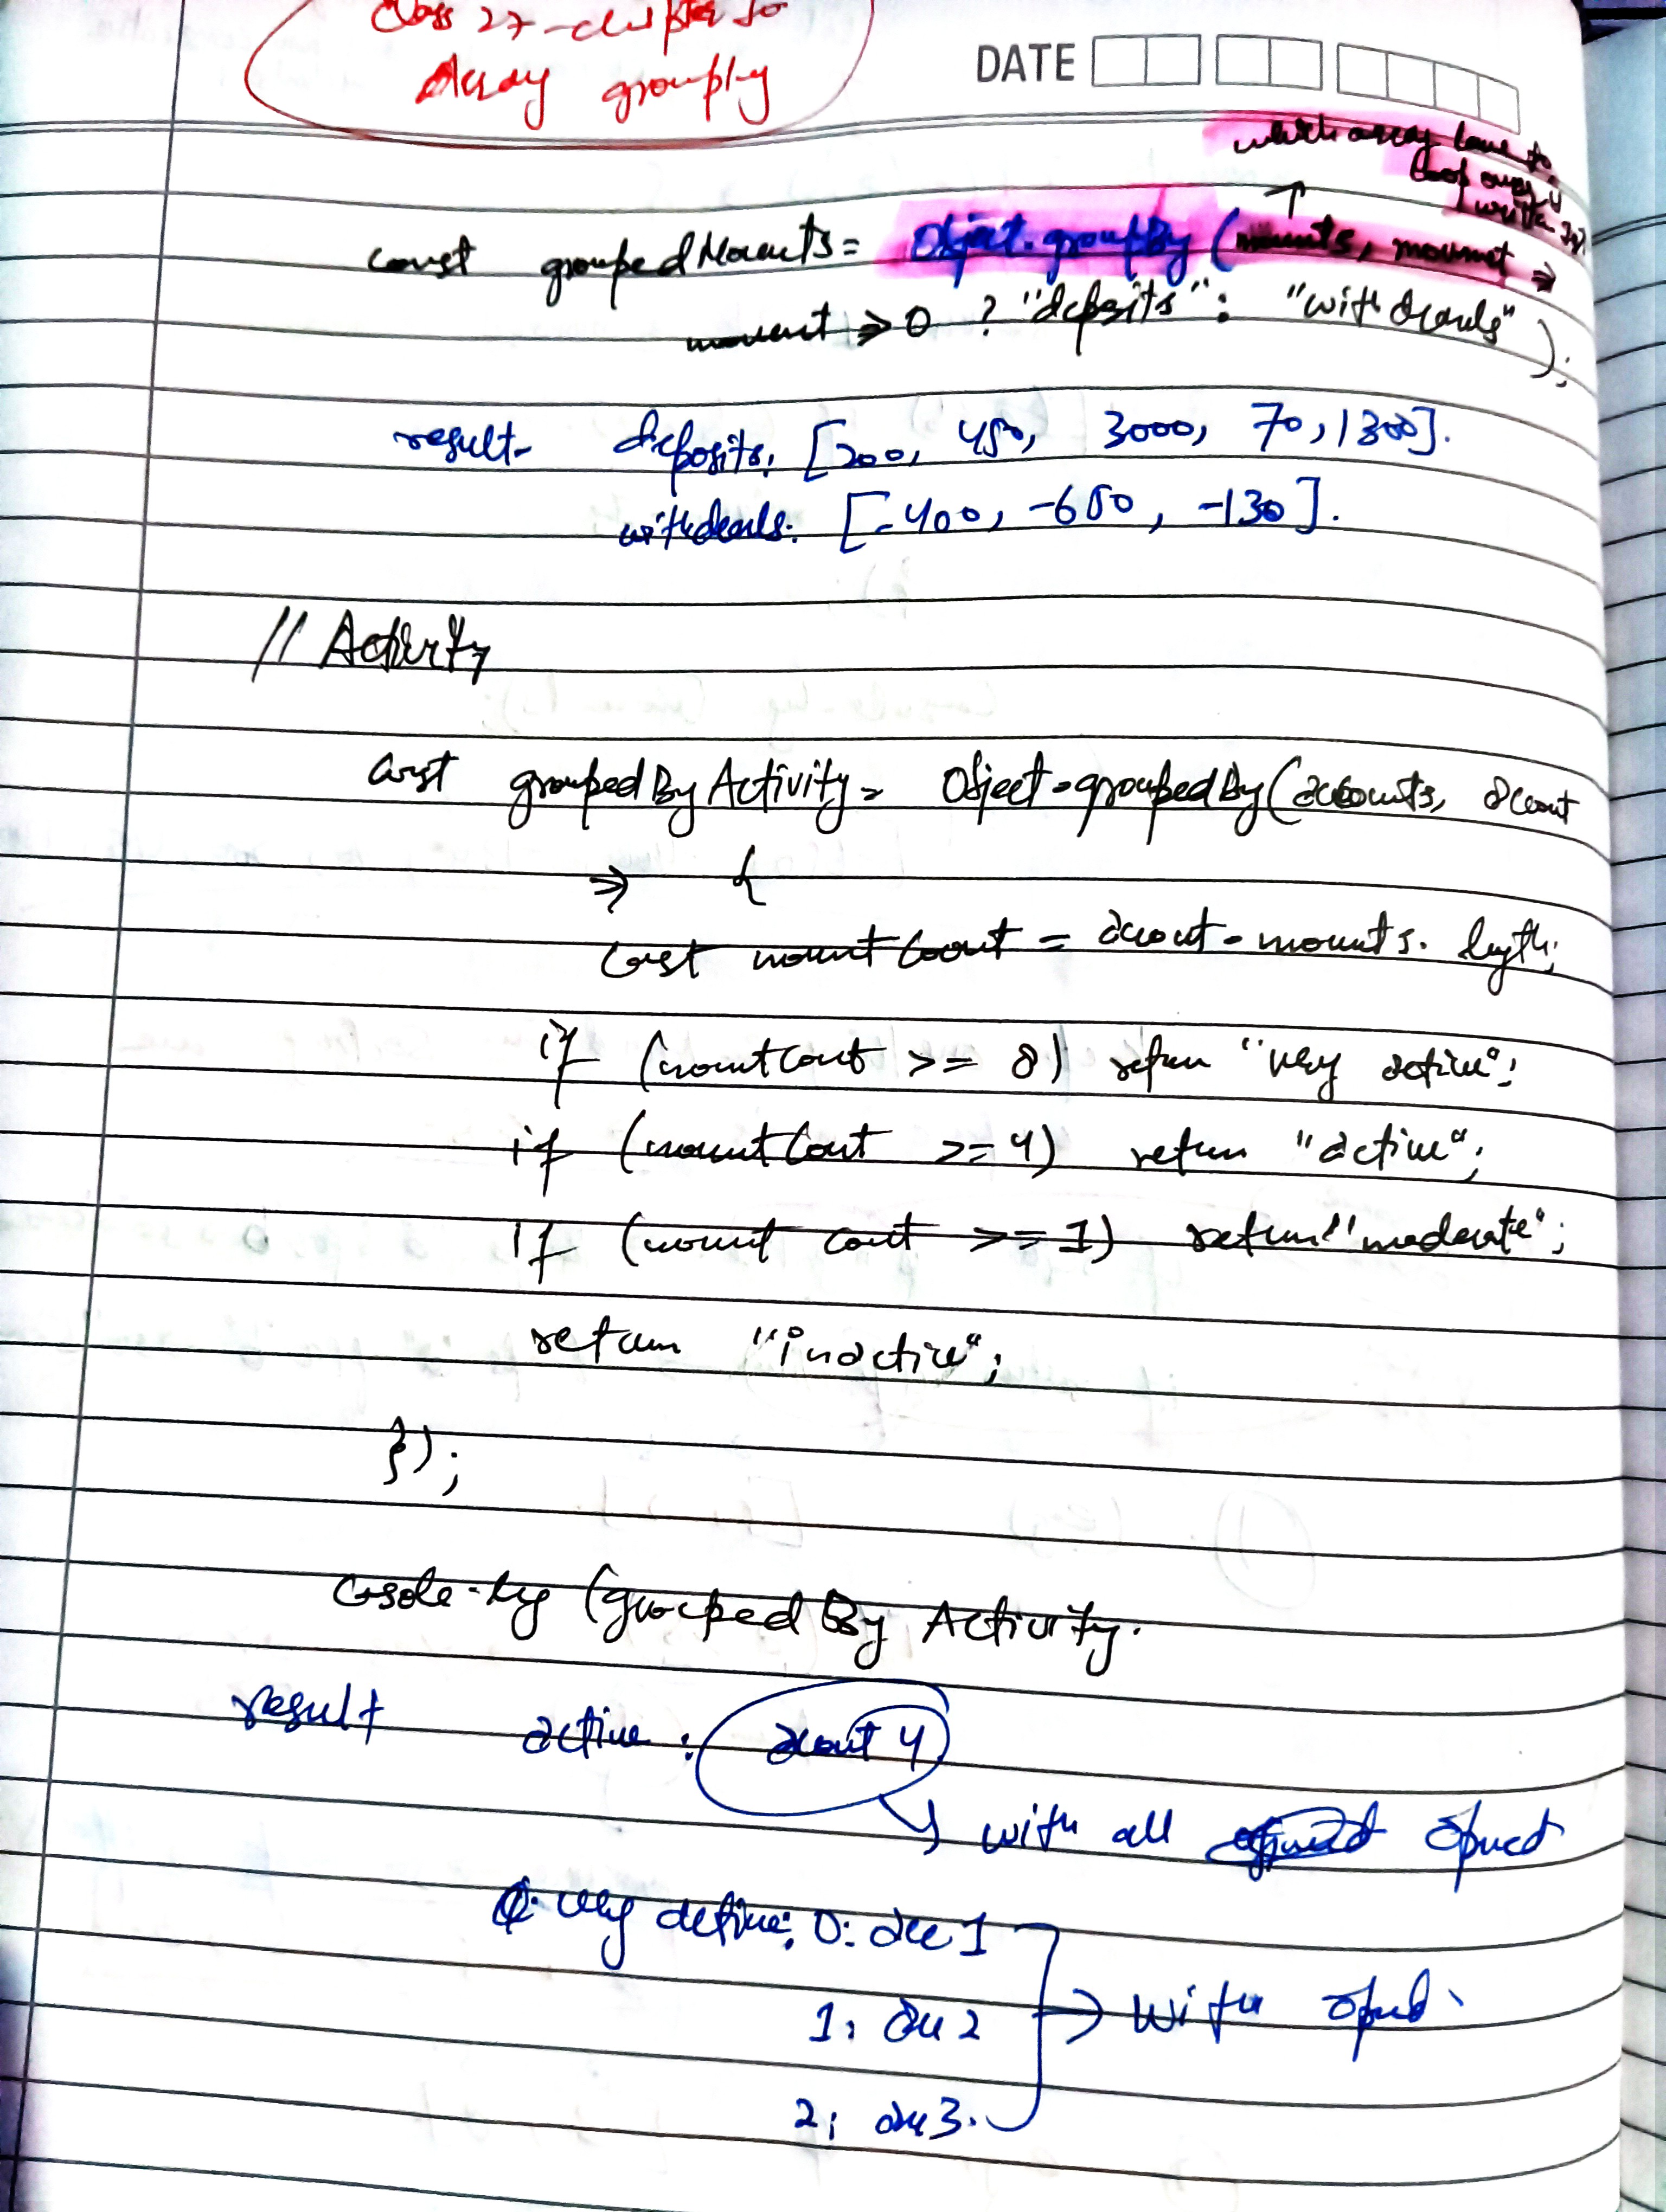 Class 27 - chapter
Array groupby
DATE
which array have to
loop over
write
const groupedMounts = Object.groupBy (mounts, moumet =>
mount > 0 ? "deposits" : "withdrawls" );
result - deposits: [200, 450, 3000, 70, 1300].
withdrawls: [-400, -650, -130].
// Activity
const groupedByActivity = Object.groupedBy(accounts, account
=> {
const mountCount = account.mounts.length;
if (mountCount >= 8) return "very active";
if (mountCount >= 4) return "active";
if (mount count >= 1) return "moderate";
return "inactive";
});
Console.log (groupedByActivity.
result active : acount 4
with all
very active: 0: acc 1
1: acc 2
2: acc 3.
with